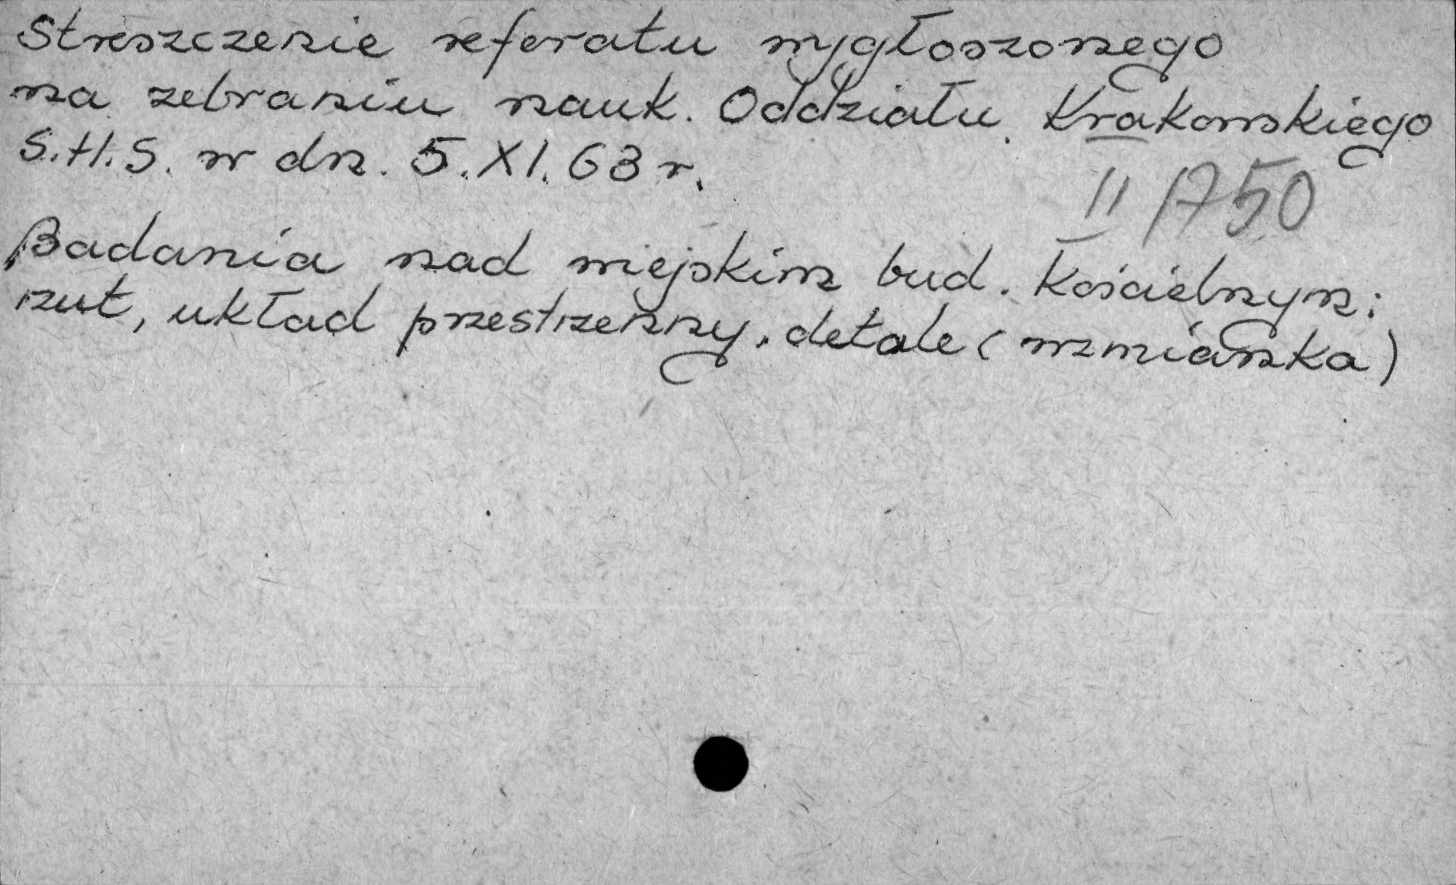 Streszczenie referatu wygłoszonego
na zebraniu nauk. Oddziału Krakowskiego
S.H.S. w dn. 5.XI.63 r.
II 1750
Badania nad miejskim bud. Kościelnym:
rzut, układ przestrzenny, detale (wzmianka)